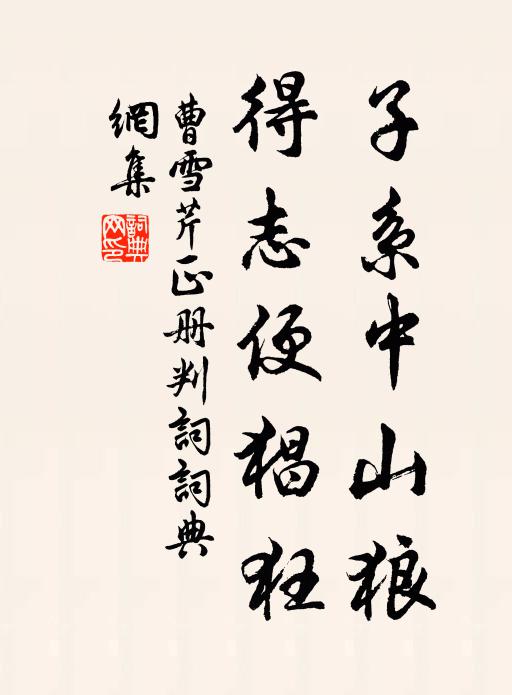 子系中山狼
得志便猖狂
曹雪芹正册判詞詞典
網集
詞典網印